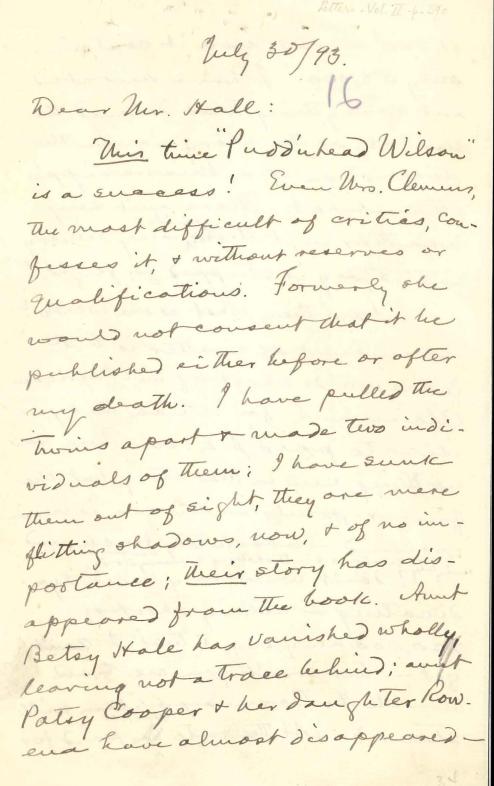 Letters - Vol. II - p. 590
July 30/93.
16
Dear Mr. Hall:
This time "Pudd'nhead Wilson"
is a success! Even Mrs. Clemens,
the most difficult of critics, con-
fesses it, & without reserves or
qualifications. Formerly she
would not consent that it be
published either before or after
my death. I have pulled the
twins apart & made two indi-
viduals of them; I have sunk
them out of sight, they are mere
flitting shadows, now, & of no im-
portance; their story has dis-
appeared from the book. Aunt
Betsy Hale has vanished wholly,
leaving not a trace behind; aunt
Patsy Cooper & her daughter Row-
ena have almost disappeared—